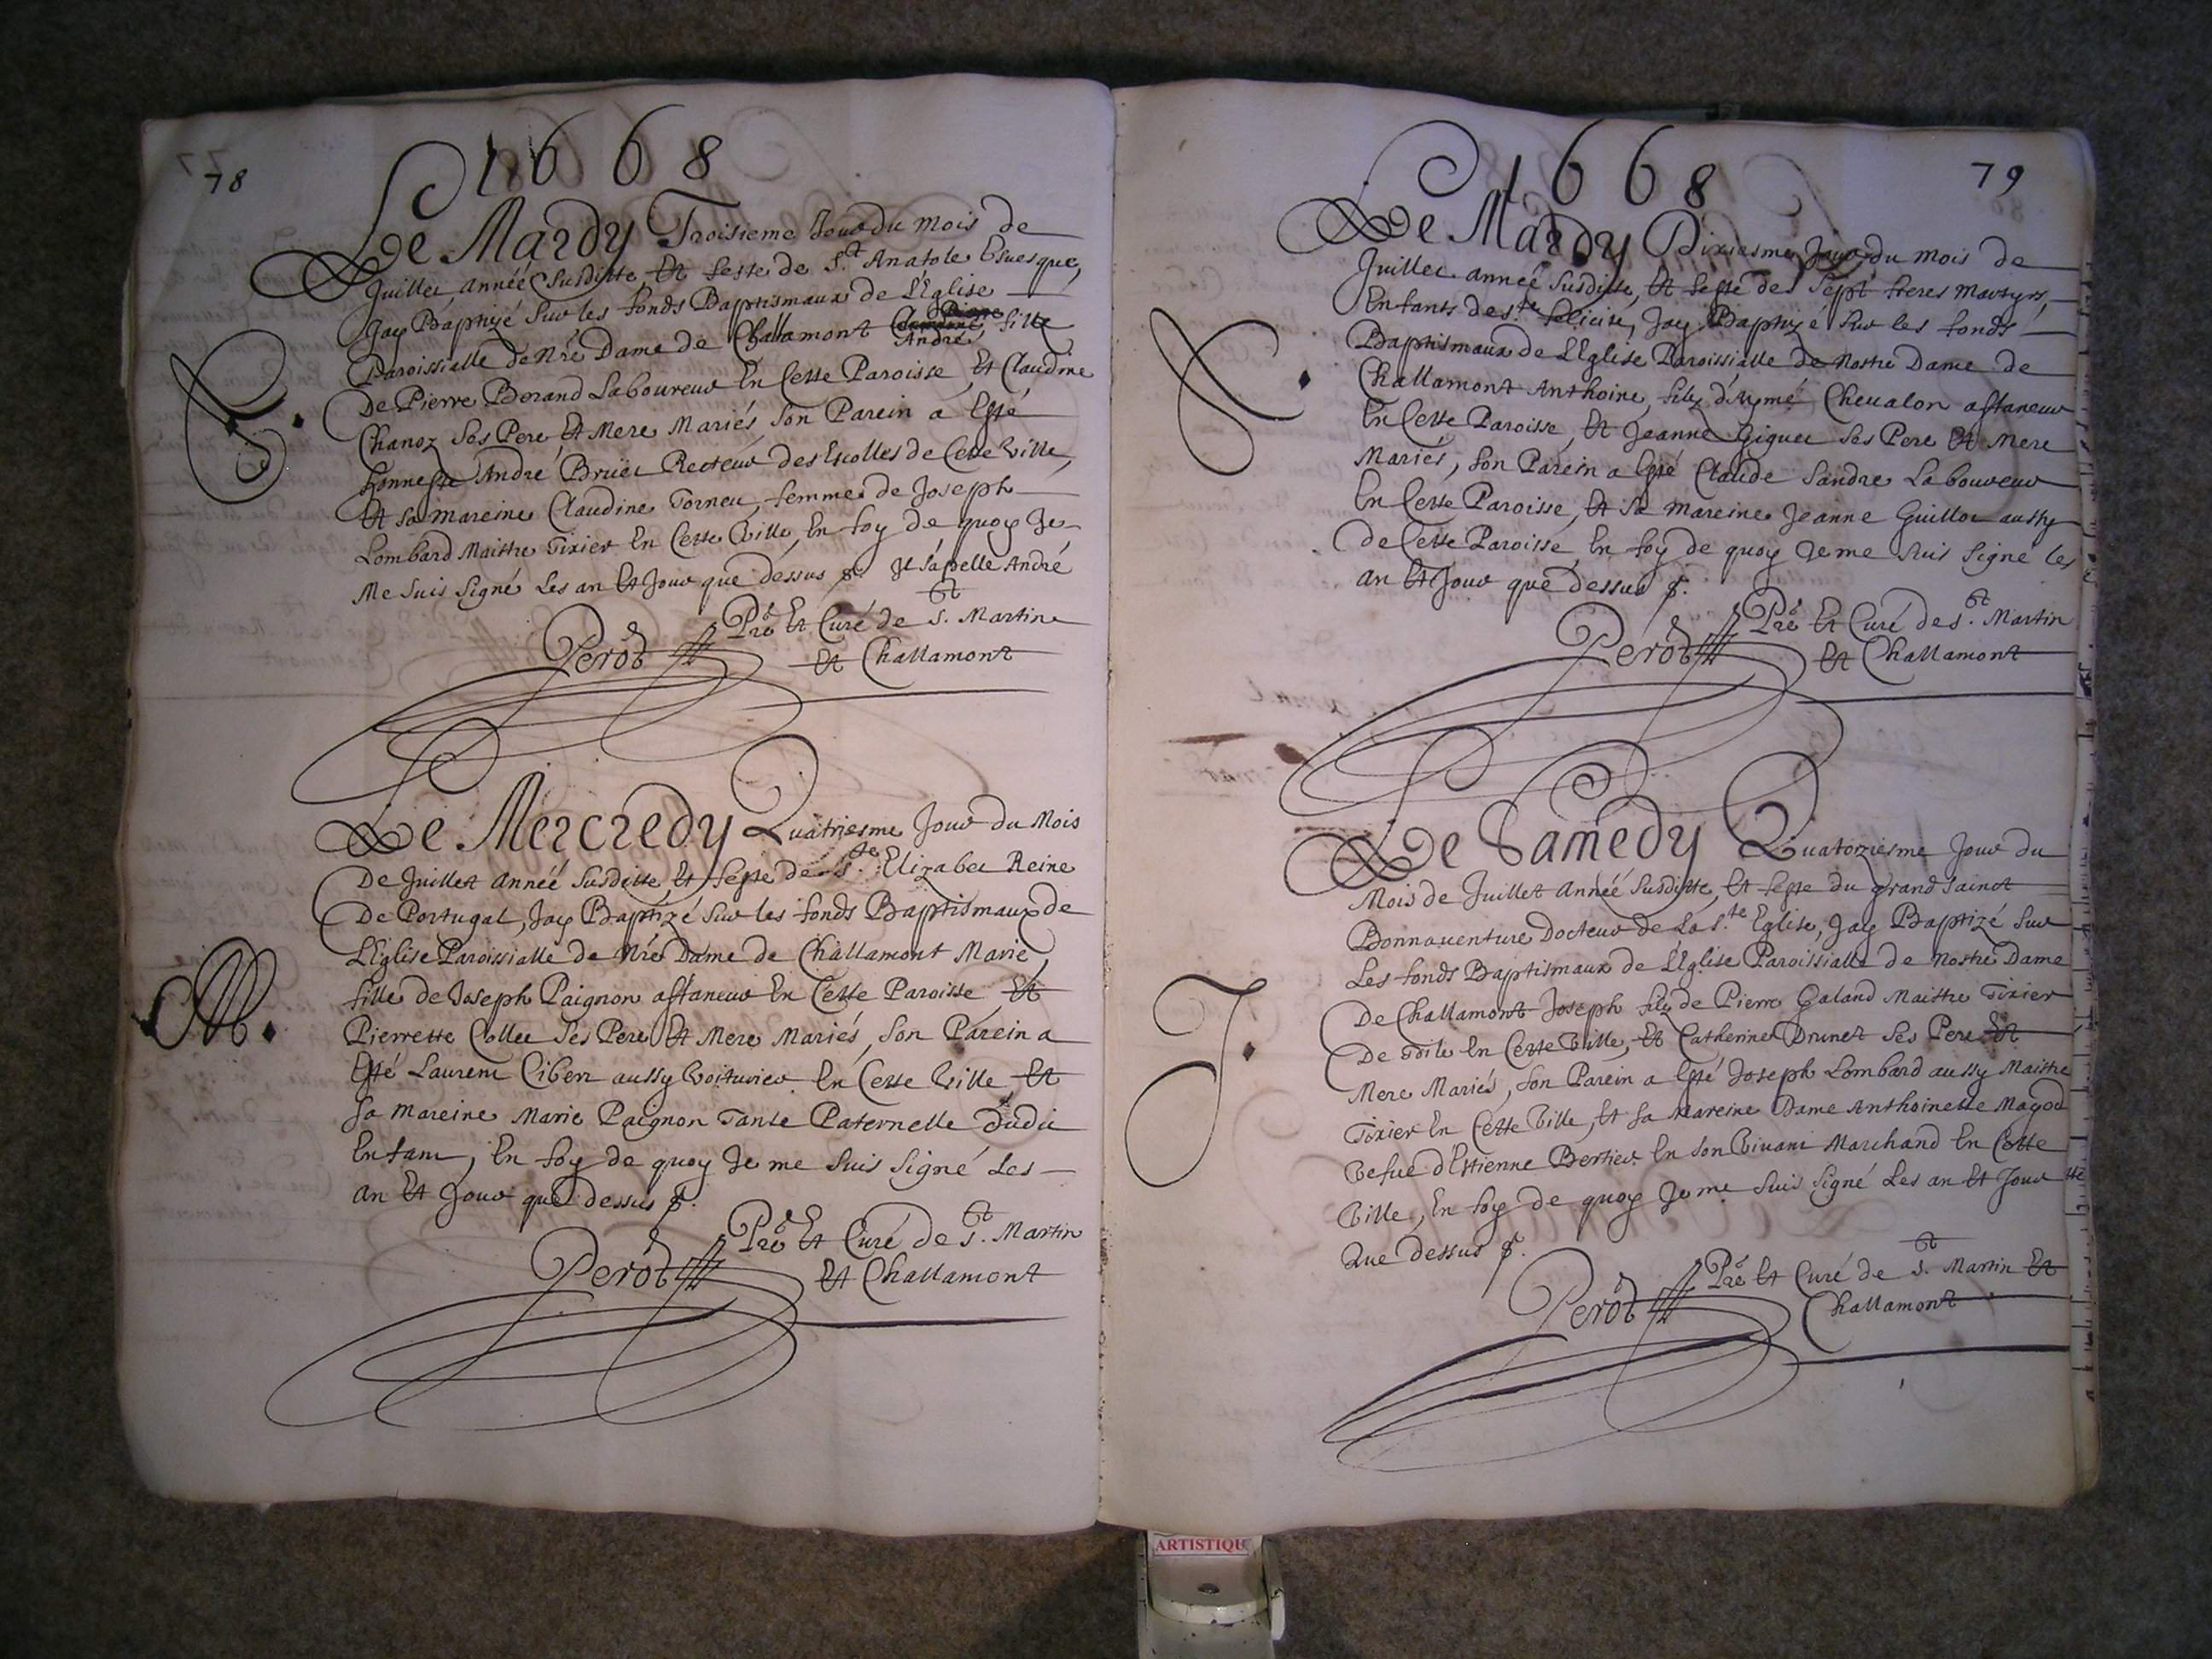 78
1668
Le Mardy Troisieme Jour du Mois de
Juillet Année Susditte, Et feste de S.t Anatole Evesque,
Jay Baptizé Sur les fonds Baptismaux de L'Eglise
Paroissialle de Nre Dame de Challamont André, fille
De Pierre Berand Laboureur En Cette Paroisse, Et Claudine
Chanoz Ses Pere, Et Mere Mariés, Son Parein a Esté
honneste André Bruët Recteur des Escolles de Cette Ville,
Et Sa Mareine Claudine Torneu, femme de Joseph
Lombard Maistre Tixier En Cette Ville, En foy de quoy Je
Me Suis Signé Les an Et Jour que dessus Il S'apelle André
Perod Pre Et Curé de S.t Martin
Et Challamont
Le Mercredy Quatriesme Jour du Mois
De Juillet Année Susditte, Et feste de S.te Elizabet Reine
De Portugal, Jay Baptizé Sur les fonds Baptismaux de
L'Eglise Paroissialle de Nre Dame de Challamont Marie,
fille de Joseph Paignon affaneur En Cette Paroisse Et
Pierrette Collet Ses Pere Et Mere Mariés, Son Parein a
Esté Laurent Ciberz aussy Voiturier En Cette Ville Et
Sa Mareine Marie Paignon Tante Paternelle dudit
Enfant, En foy de quoy Je me Suis Signé Les
an Et Jour que dessus
Perod Pre Et Curé de S.t Martin
Et Challamont
M.
1668
79
Le Mardy Dixiesme Jour du Mois de
Juillet année Susditte, Et feste des Sept freres Martyrs,
Enfants de S.te felicité, Jay Baptizé Sur les fonds
Baptismaux de L'Eglise Paroissialle de Nostre Dame de
Challamont Anthoine, filz d'Aymé Chevalon affaneur
En Cette Paroisse, Et Jeanne Giguet Ses Pere Et Mere
Mariés, Son Parein a Esté Claude Sandre Laboureur
En Cette Paroisse, Et Sa Mareine Jeanne Guillot aussy
de Cette Paroisse, En foy de quoy Je me Suis Signé les
an Et Jour que dessus
Perod Pre Et Curé de S.t Martin
Et Challamont
Le Samedy Quatorziesme Jour du
Mois de Juillet Année Susditte, Et feste du grand Sainct
Bonnaventure Docteur de La S.te Eglise, Jay Baptizé Sur
Les fonds Baptismaux de L'Eglise Paroissialle de Nostre Dame
De Challamont Joseph filz de Pierre Galand Maistre Tixier
De Toile En Cette Ville, Et Catherine Brunet Ses Pere Et
Mere Mariés, Son Parein a Esté Joseph Lombard aussy Maistre
Tixier En Cette Ville, Et Sa Mareine Dame Anthoinette Mayod
Vefue d'Estienne Bertier En Son Vivant Marchand En Cette
Ville, En foy de quoy Je me Suis Signé Les an Et Jour
Que dessus
Perod Pre Et Curé de S.t Martin Et
Challamont
J.
ARTISTIQU